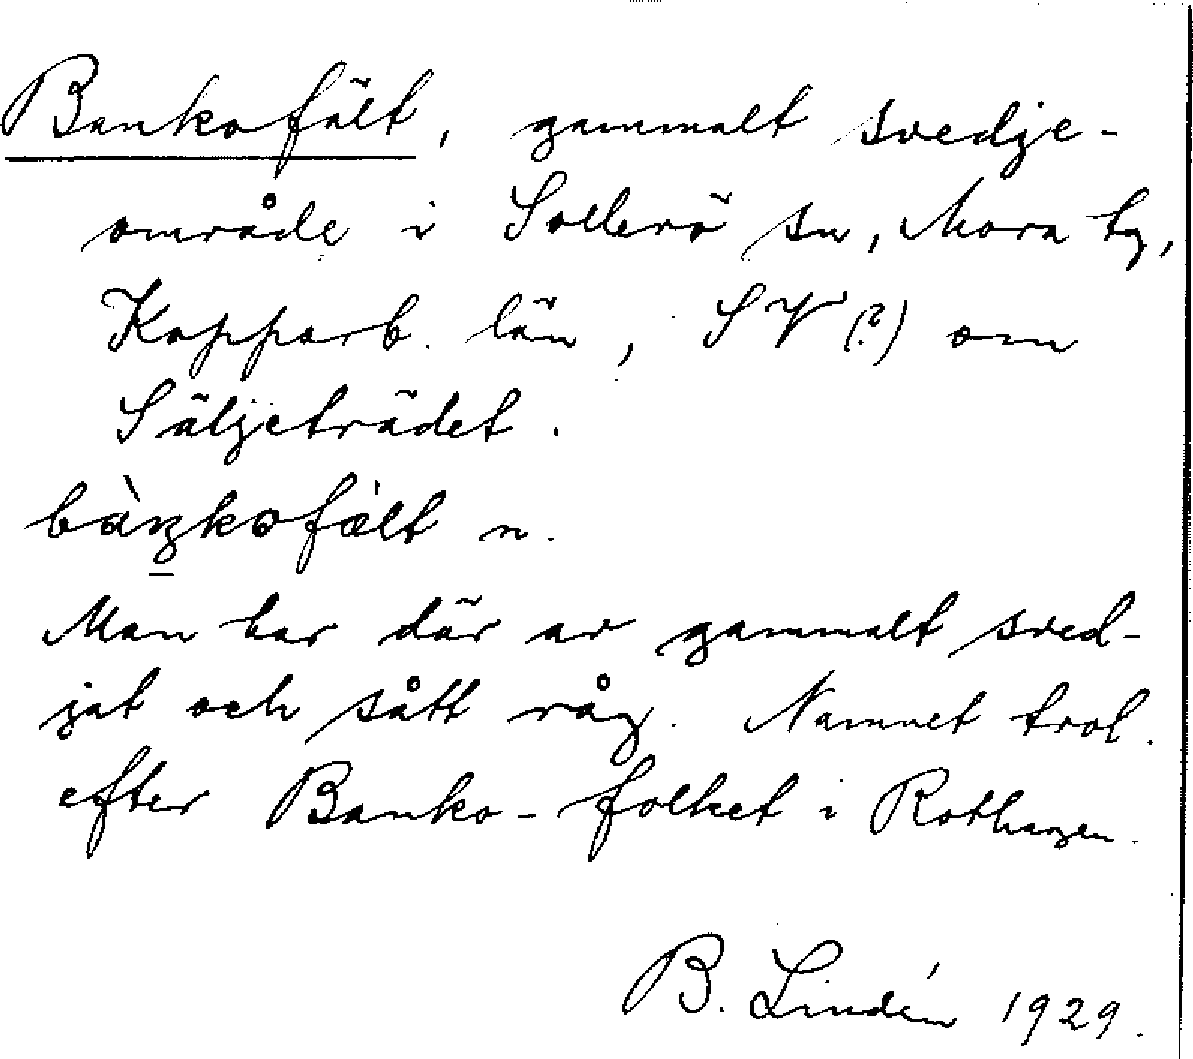 Bankofält, gammalt svedje-
område i Sollerö sn, Mora tg,
Kopparb. län, SV (?) om
Säljeträdet.
bàŋkofæ̀lt n.
Man har där av gammalt sved-
jat och sått råg. Namnet trol.
efter Banko-folket i Rothagen.
B. Lindén 1929.